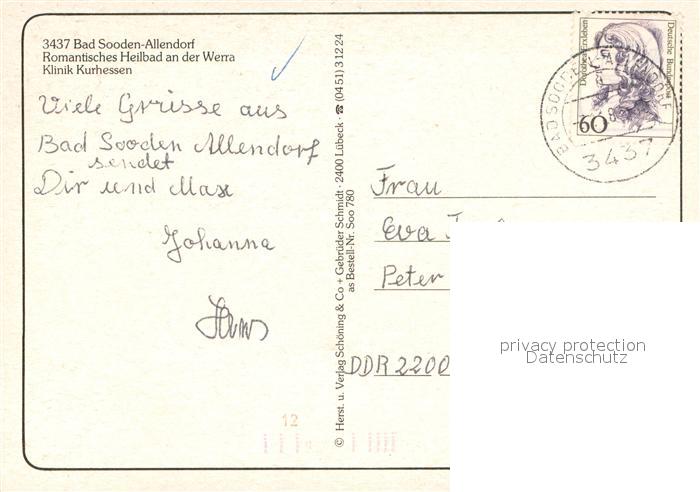 3437 Bad Sooden-Allendorf
Romantisches Heilbad an der Werra
Klinik Kurhessen
Viele Grüsse aus
Bad Sooden Allendorf
sendet
Dir und Max
Johanna
Hans
© Herst. u. Verlag Schöning & Co + Gebrüder Schmidt · 2400 Lübeck · ☎ (04 51) 3 12 24
as Bestell-Nr. Soo 780
Dorothea Erxleben
Deutsche Bundespost
60
BAD SOODEN-ALLENDORF
3437
Frau
Eva
Peter
DDR 2200
12
privacy protection
Datenschutz